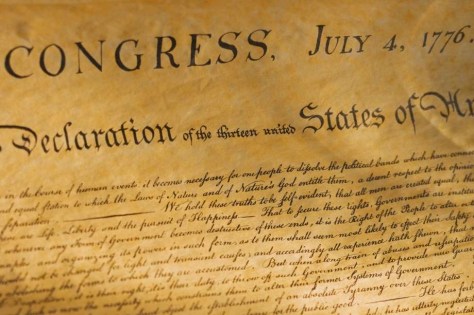 CONGRESS, JULY 4, 1776.
Declaration of the thirteen united States of
in the course of human events, it becomes necessary for one people to dissolve the political bands which have
and equal station to which the Laws of Nature and of Nature's God entitle them, a decent respect to the opinions
separation. We hold these truths to be self-evident, that all men are created equal, that
Life, Liberty and the pursuit of Happiness. — That to secure these rights, Governments are
whenever any Form of Government becomes destructive of these ends, it is the Right of the People to alter
and organizing its powers in such form, as to them shall seem most likely to effect their
for light and transient causes; and accordingly all experience hath shewn, that
the forms to which they are accustomed. But when a long train of abuses and usurpations
it is their right, it is their duty, to throw off such Government, and to provide new
which constrains them to alter their former Systems of Government.
the establishment of an absolute Tyranny over these States.
for the public good. He has